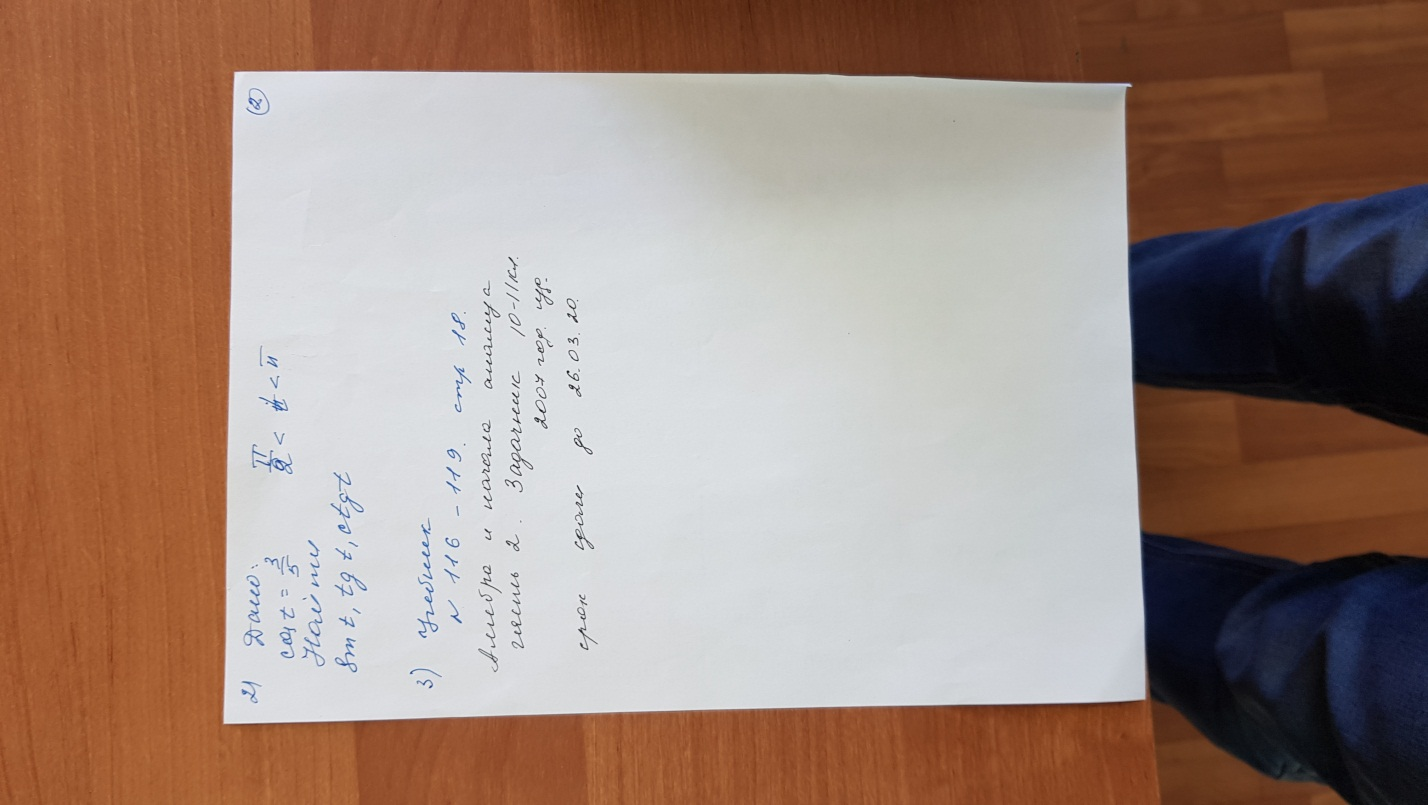 ②
2) Дано:
cos t = 3/5   π/2 < t < π
Найти
Sin t, tg t, ctg t
3) Учебник
N 116 - 119. стр 18.
Алгебра и начала анализа
часть 2. Задачник 10-11 кл.
2007 год. изд.
срок сдачи до 26.03.20.